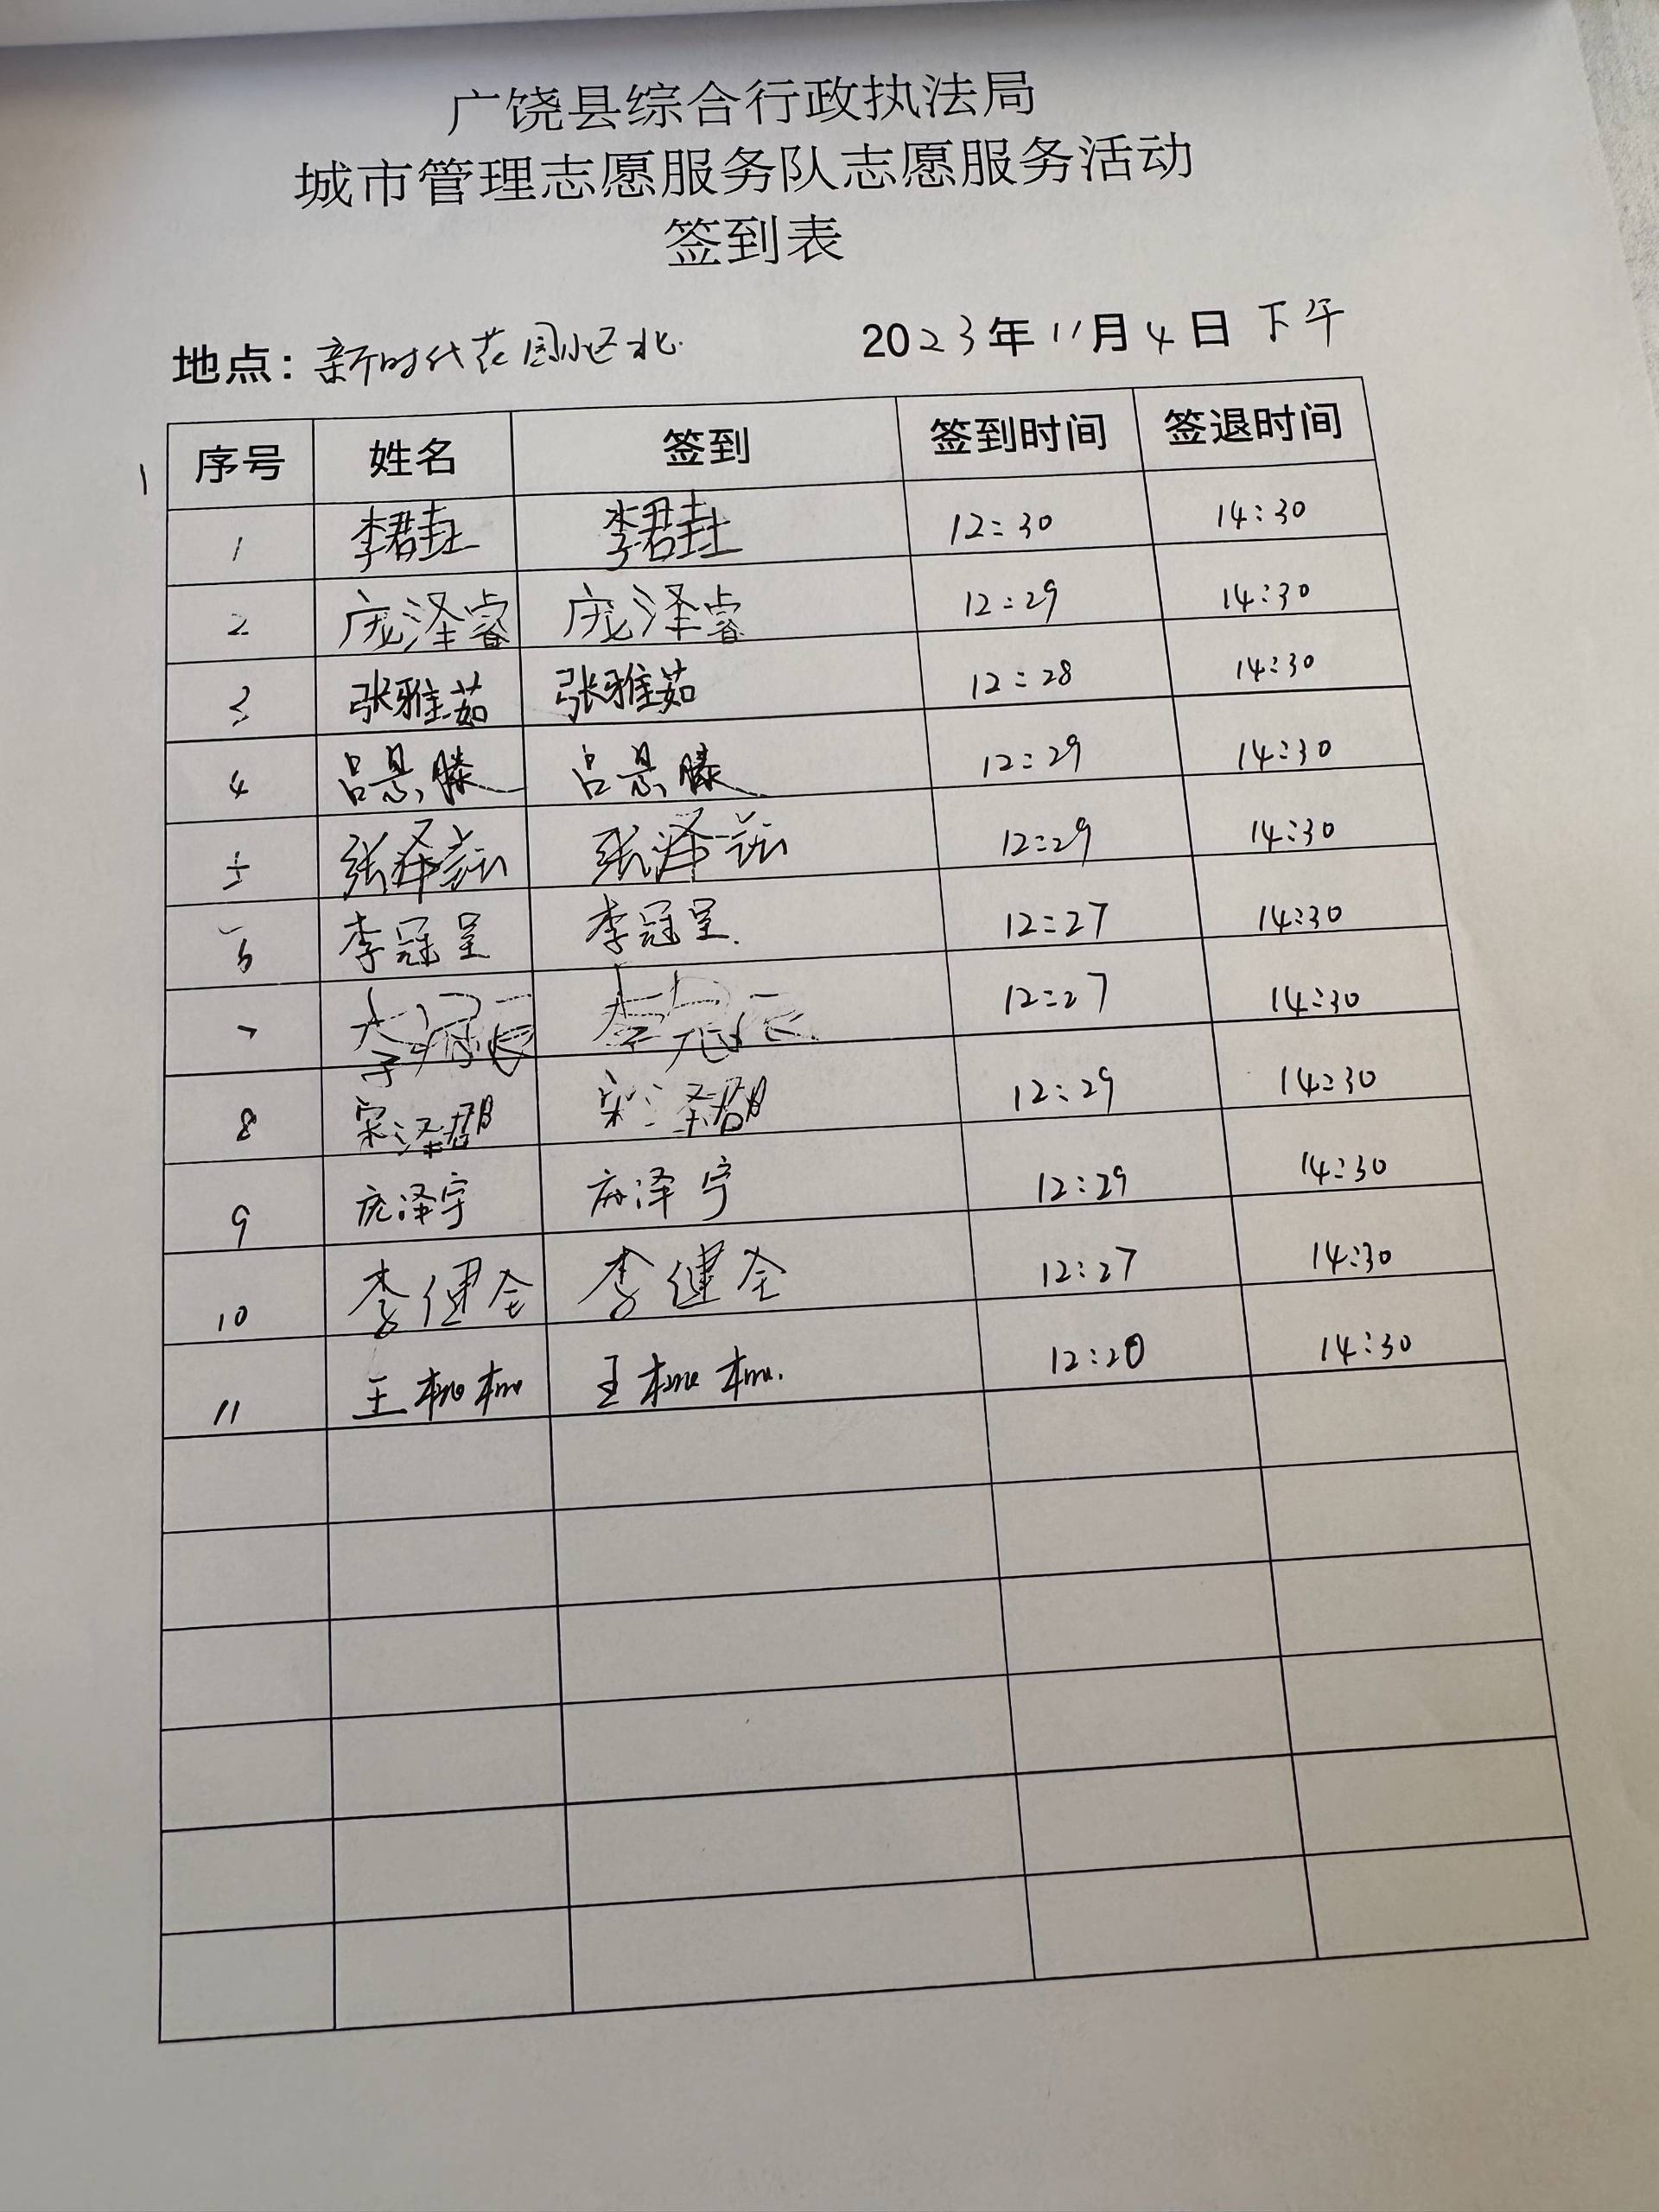 广饶县综合行政执法局
城市管理志愿服务队志愿服务活动
签到表
地点：新时代花园小区北 2023年11月4日下午
序号 姓名 签到 签到时间 签退时间
1 李君 李君 12:30 14:30
2 庞泽睿 庞泽睿 12:29 14:30
3 张雅茹 张雅茹 12:28 14:30
4 吕景滕 吕景滕 12:29 14:30
5 张泽 张泽 12:29 14:30
6 李冠呈 李冠呈 12:27 14:30
7 李冠辰 李冠辰 12:27 14:30
8 宋泽郡 宋泽郡 12:29 14:30
9 庞泽宇 庞泽宇 12:29 14:30
10 李健全 李健全 12:27 14:30
11 王 王 12:20 14:30